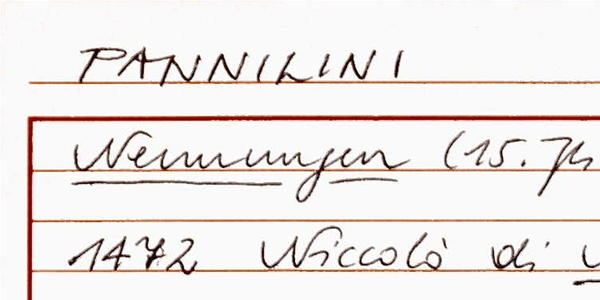 PANNILINI
Nennungen (15. Jh
1472 Niccolò di